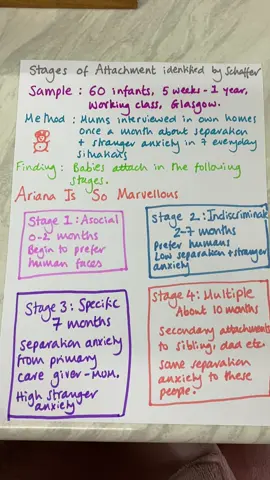 Stages of Attachment identified by Schaffer
Sample : 60 infants, 5 weeks - 1 year,
Working class, Glasgow.
Method : Mums interviewed in own homes
once a month about separation
+ stranger anxiety in 7 everyday
situations
Finding : Babies attach in the following
stages.
Ariana Is So Marvellous
Stage 1 : Asocial
0-2 months
Begin to prefer
human faces
Stage 2 : Indiscriminate
2-7 months
Prefer humans
Low separation + stranger
anxiety
Stage 3 : Specific
7 months
Separation anxiety
from primary
care giver - MUM.
High stranger
anxiety
Stage 4 : Multiple
About 10 months
Secondary attachments
to sibling, dad etc.
Same separation
anxiety to these
people.